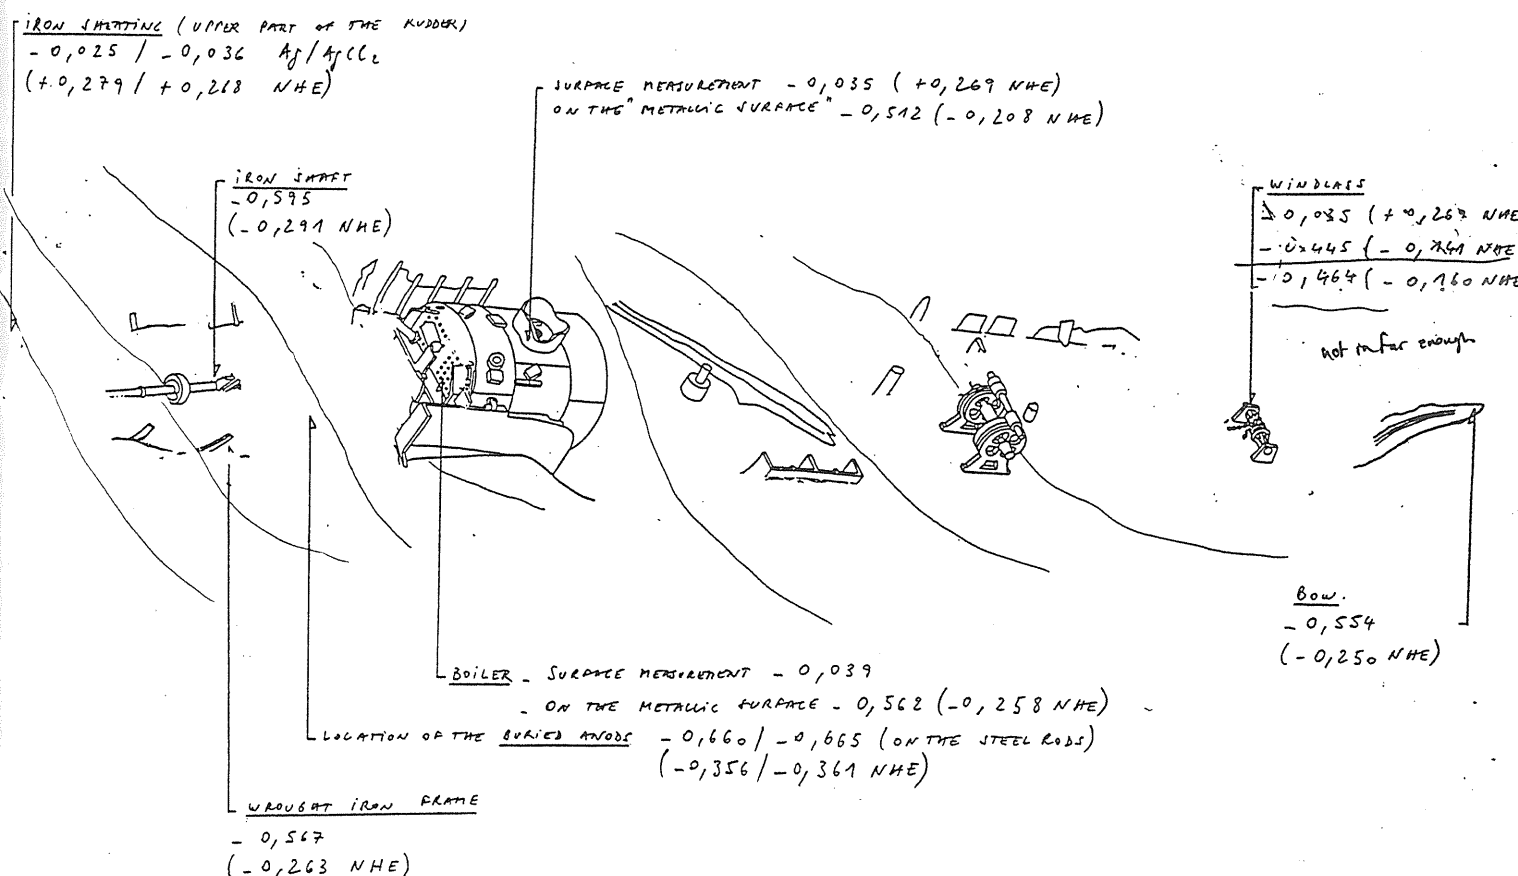 IRON SHEATING (UPPER PART OF THE RUDDER)
- 0,025 / - 0,036 Ag/AgCl2
(+0,279 / + 0,268 NHE)
SURFACE MEASUREMENT - 0,035 ( +0,269 NHE)
ON THE "METALLIC SURFACE" - 0,512 (- 0,208 NHE)
IRON SHAFT
- 0,595
(- 0,291 NHE)
WINDLASS
- 0,035 (+ 0,269 NHE
- 0,445 (- 0,141 NHE
- 0,464 (- 0,160 NHE
not in far enough
BOW.
- 0,554
(- 0,250 NHE)
BOILER - SURFACE MEASUREMENT - 0,039
- ON THE METALLIC SURFACE - 0,562 (-0,258 NHE)
LOCATION OF THE BURIED ANODS - 0,660 / - 0,665 (ON THE STEEL RODS)
(-0,356 / -0,361 NHE)
WROUGHT IRON FRAME
- 0,567
(- 0,263 NHE)